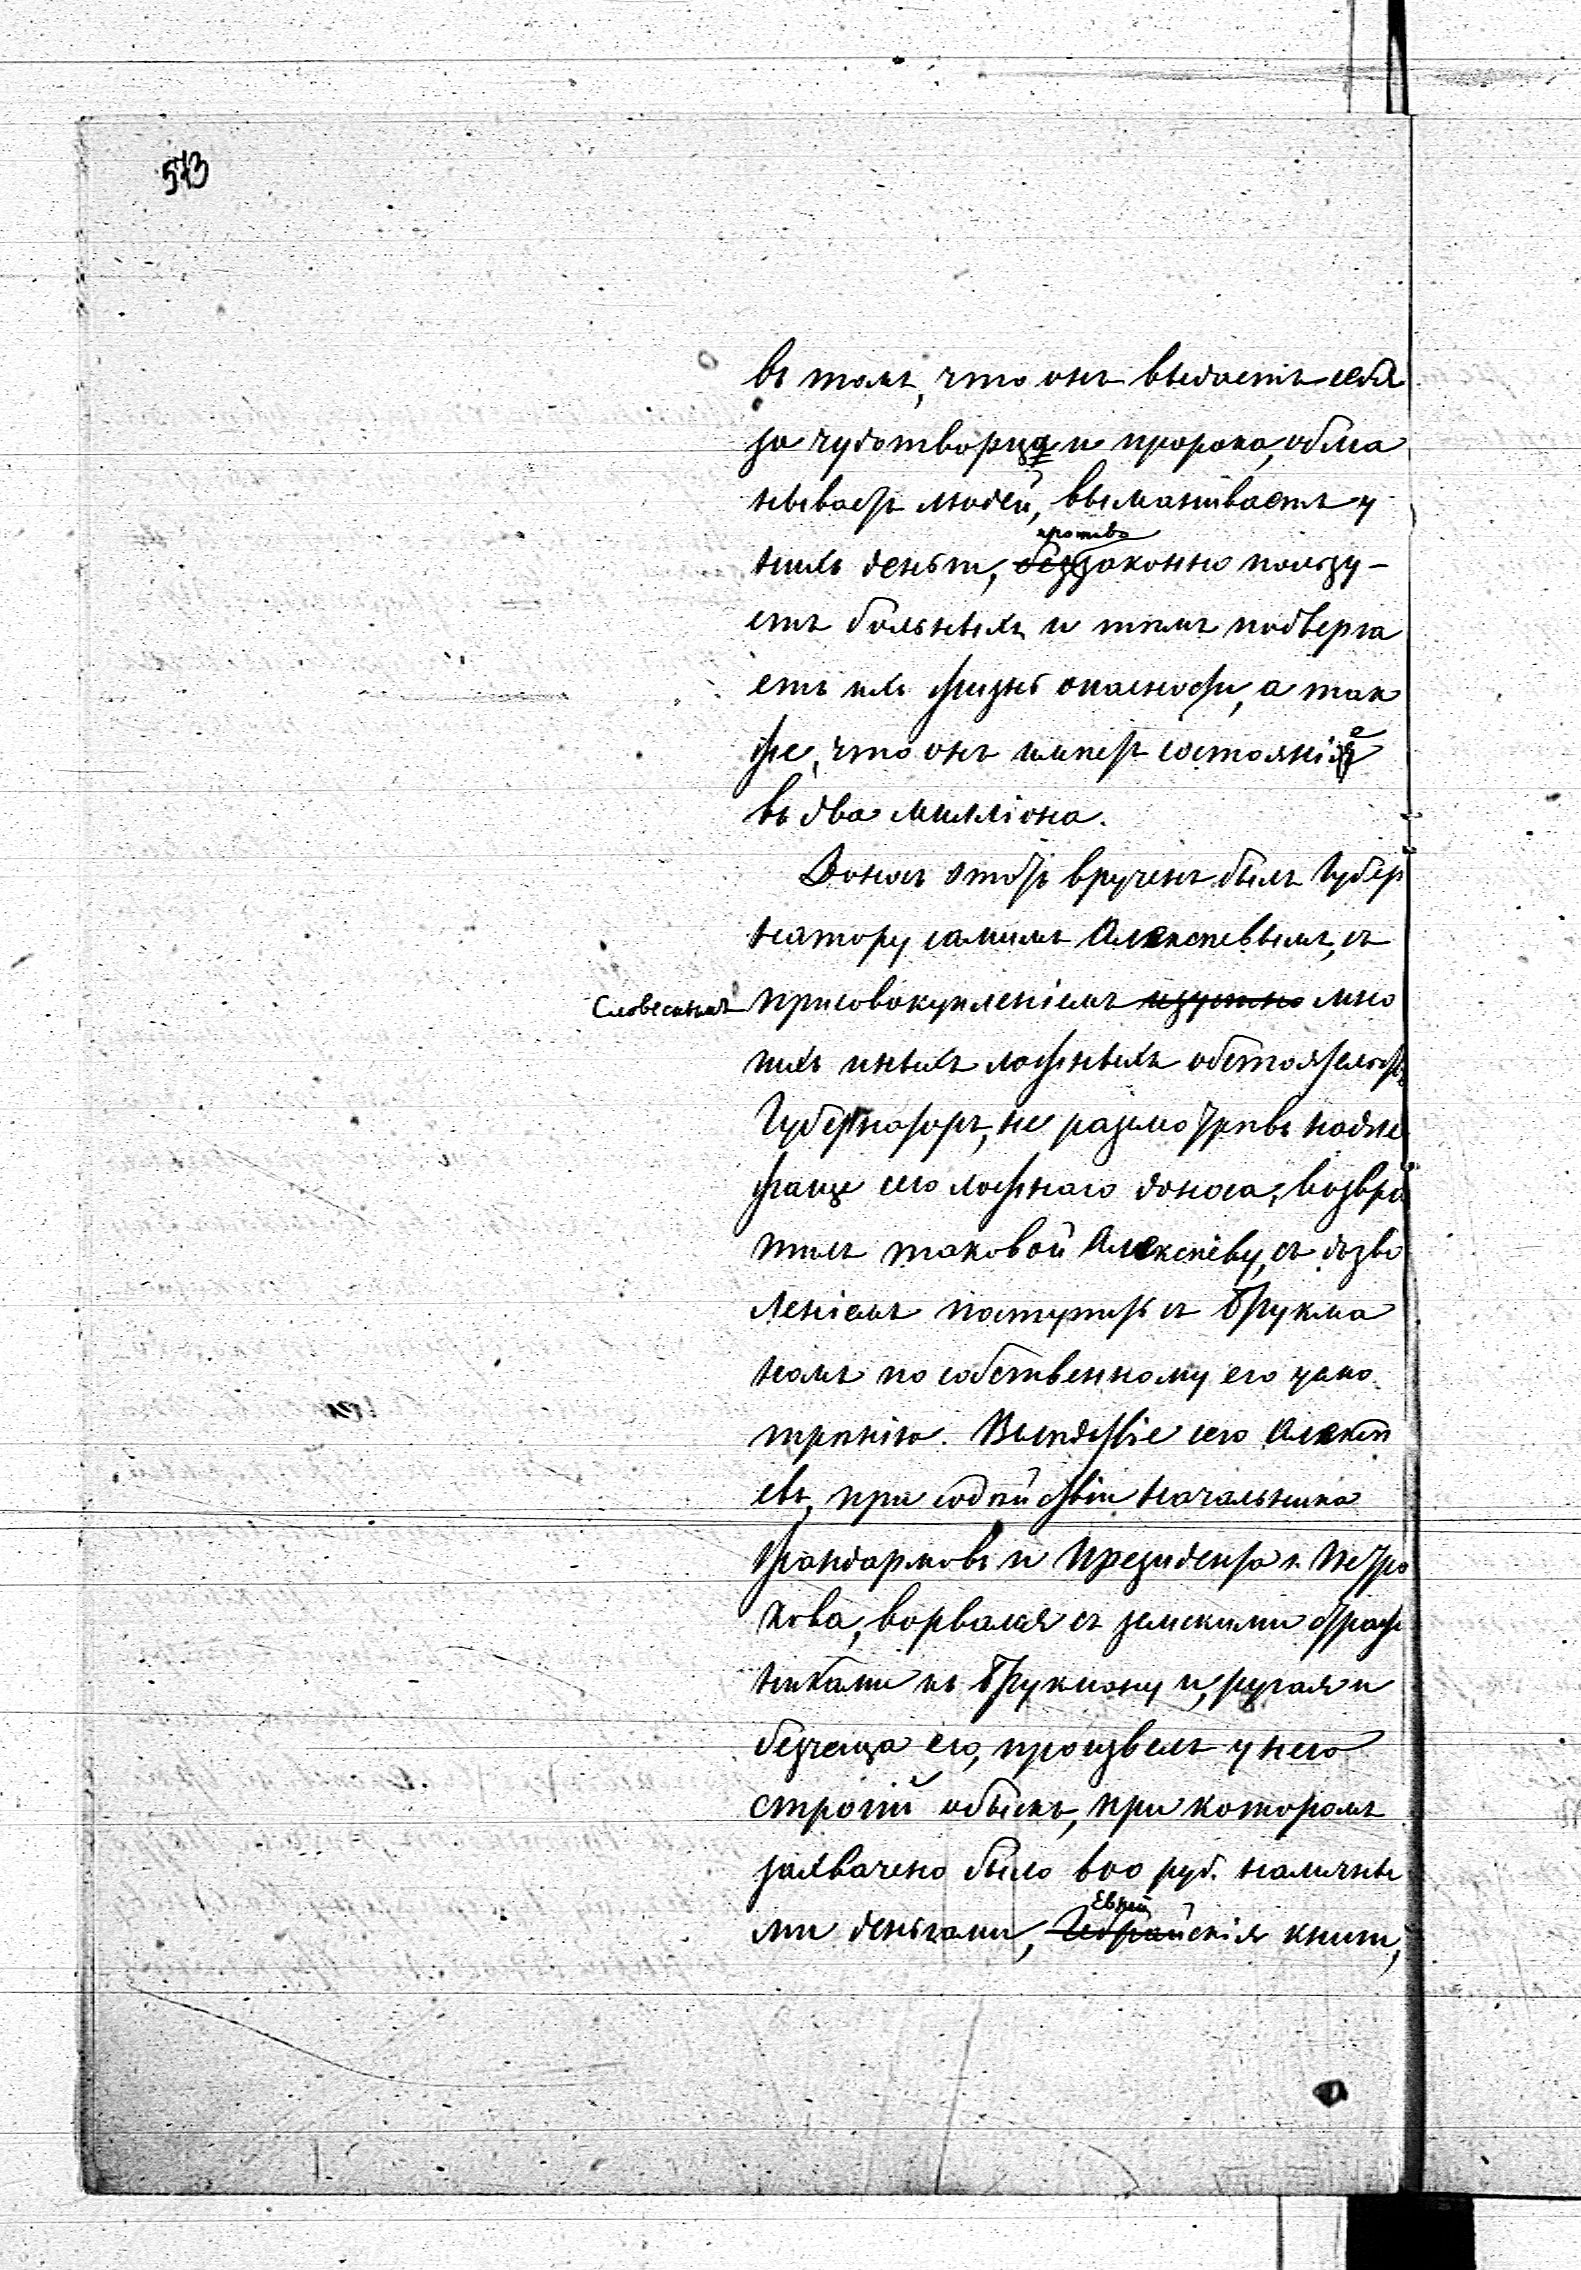 573
въ томъ, что онъ выдаетъ себя
за чудотворца и пророка, обма
нываетъ людей, выманиваетъ у
противо
нихъ деньги, беззаконно пользу-
етъ больныхъ и тѣмъ подверга
етъ ихъ жизнь опасности, а так
же, что онъ имѣетъ состояніе
въ два милліона.
Доносъ этотъ врученъ былъ Губер
натору самимъ Алексѣевымъ, съ
Словесныхъ присовокупленіемъ изустно мно
гихъ иныхъ ложныхъ обстоятельствъ
Губернаторъ, не разсмотрѣвъ надле
жаще сего ложнаго доноса, возвра
тилъ таковой Алексѣеву, съ дозво
леніемъ поступить съ Трукма
номъ по собственному его усмо
трѣнію. Вслѣдствіе сего Алексѣ
евъ, при содѣйствіи начальника
жандармовъ и Президента г. Петро
кова, ворвался съ земскими страж
никами къ Трукману и, ругая и
безчеща его, произвелъ у него
строгій обыскъ, при которомъ
захвачено было 600 руб. наличны
Еврей
ми деньгами, Гебрайскія книги,